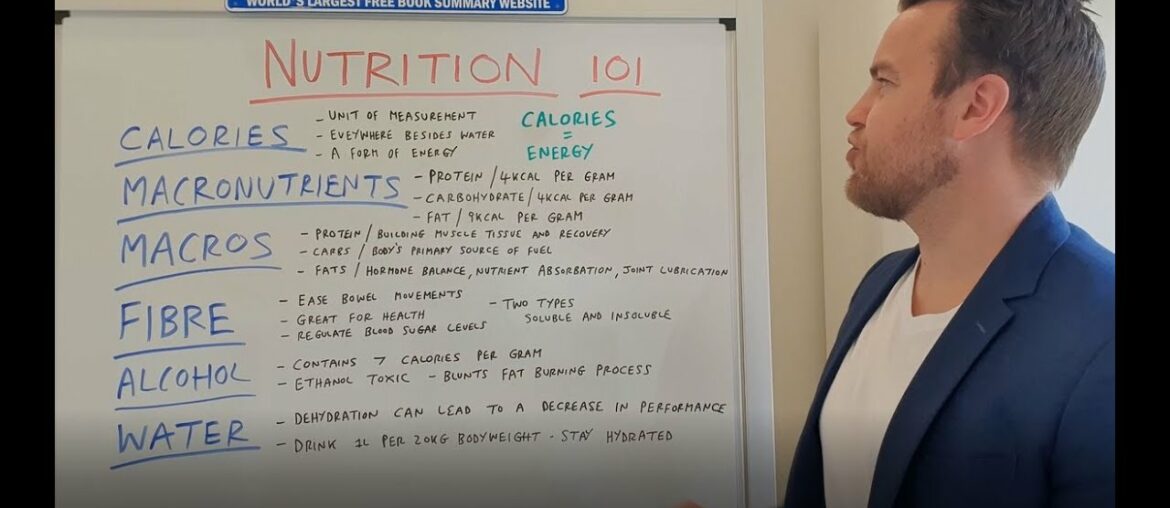 WORLD'S LARGEST FREE BOOK SUMMARY WEBSITE
NUTRITION 101
CALORIES
- UNIT OF MEASUREMENT
- EVEYWHERE BESIDES WATER
- A FORM OF ENERGY
CALORIES
=
ENERGY
MACRONUTRIENTS
- PROTEIN / 4KCAL PER GRAM
- CARBOHYDRATE / 4KCAL PER GRAM
- FAT / 9KCAL PER GRAM
MACROS
- PROTEIN / BUILDING MUSCLE TISSUE AND RECOVERY
- CARBS / BODY'S PRIMARY SOURCE OF FUEL
- FATS / HORMONE BALANCE, NUTRIENT ABSORBATION, JOINT LUBRICATION
FIBRE
- EASE BOWEL MOVEMENTS
- GREAT FOR HEALTH
- REGULATE BLOOD SUGAR LEVELS
- TWO TYPES
SOLUBLE AND INSOLUBLE
ALCOHOL
- CONTAINS 7 CALORIES PER GRAM
- ETHANOL TOXIC - BLUNTS FAT BURNING PROCESS
WATER
- DEHYDRATION CAN LEAD TO A DECREASE IN PERFORMANCE
- DRINK 1L PER 20KG BODYWEIGHT - STAY HYDRATED